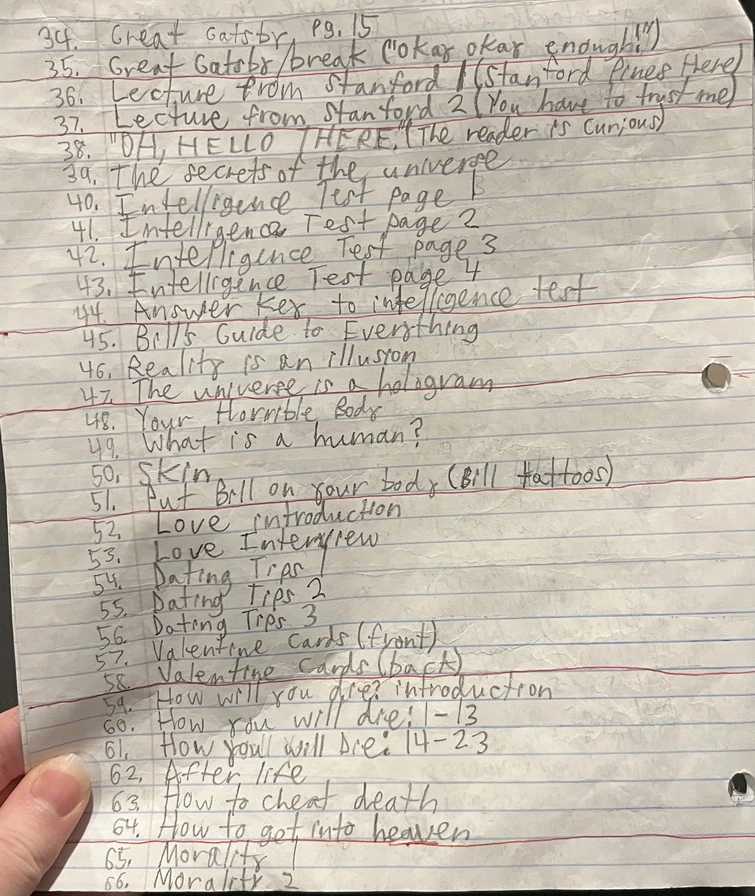 34. Great Gatsby, pg. 15
35. Great Gatsby/break ("Okay okay enough!")
36. Lecture from Stanford 1 (Stanford Pines Here)
37. Lecture from Stanford 2 (You have to trust me)
38. "OH, HELLO THERE." (The reader is curious)
39. The secrets of the universe
40. Intelligence Test page 1
41. Intelligence Test page 2
42. Intelligence Test page 3
43. Intelligence Test page 4
44. Answer Key to intelligence test
45. Bill's Guide to Everything
46. Reality is an illusion
47. The universe is a hologram
48. Your Horrible Body
49. What is a human?
50. Skin
51. Put Bill on your body (Bill tattoos)
52. Love introduction
53. Love Interview
54. Dating Tips 1
55. Dating Tips 2
56. Dating Tips 3
57. Valentine Cards (front)
58. Valentine Cards (back)
59. How will you die? introduction
60. How you will die: 1-13
61. How you will Die: 14-23
62. After life
63. How to cheat death
64. How to get into heaven
65. Morality 1
66. Morality 2